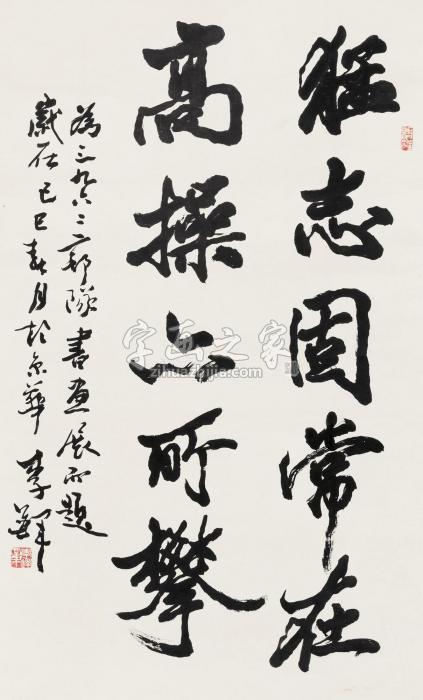 猛志固常在
高操非所攀
為三九六三二部隊書畫展而題
歲在己巳春月於京華 李鐸
字画之家
zihuazhijia.com